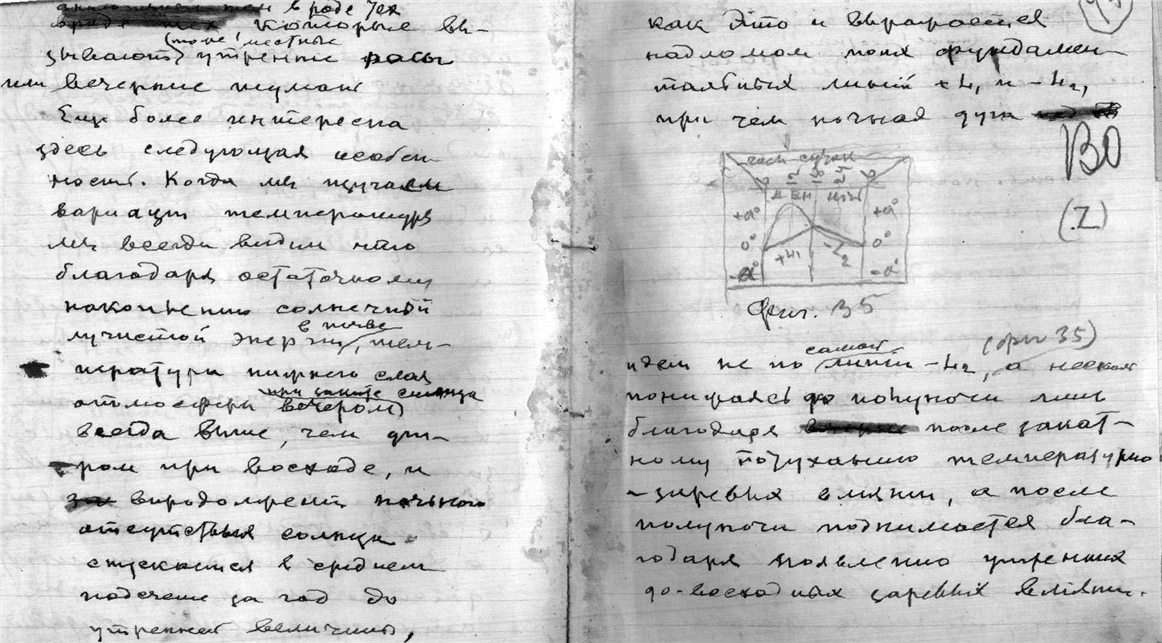 в роде тех
которые вы-
зывают (тоже местные)
утренние росы
или вечерние туманы
Еще более интересна
здесь следующая особен
ность. Когда мы изучаем
вариации температуры
мы всегда видим что
благодаря остаточному
накоплению солнечной
лучистой энергии в почве, тем-
пература нижнего слоя
атмосферы вечером при закате солнца
всегда выше, чем ут-
ром при восходе, и
впродолжении ночного
отсутствия солнца
спускается в среднем
подсчете за год до
утренней величины,
как это и выражается
надломом поля фундамен-
тальных линий +L₁ и -L₂,
при чем ночная дуга
ВО
(Z)
части суток
день ночь
+a° +a°
0° 0°
-a° -a°
+L₁ -L₂
Фиг. 35
идет не по самой линии -L₂, (фиг 35) а несколь
понижаясь до полуночи лишь
благодаря после закат-
ному потуханию температурно
-заревых влияний, а после
полуночи поднимается бла-
годаря появлению утренних
до-восходных заревых влияний.